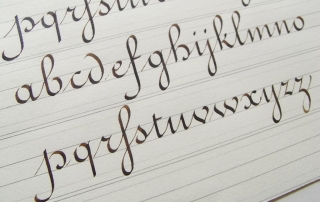 pqrſstu
abcdefghijklmno
pqrſstuvwxyzz